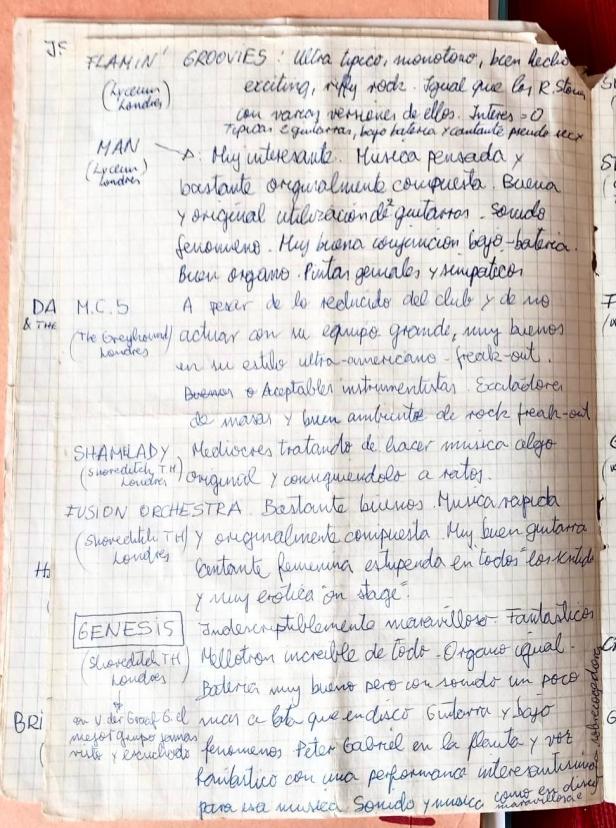 Jc
FLAMIN' GROOVIES : Ultra tipico, monotono, bien hecho
(Lyceum Londres) exciting, riffy rock. Igual que los R. Stones
con varias versiones de ellos. Interes = 0
Tipicas 2 guitarras, bajo bateria y cantante pseudo sexy
MAN
(Lyceum Londres) Muy interesante. Musica pensada y
bastante originalmente compuesta. Buena
y original utilización de 2 guitarras. Sonido
fenomeno. Muy buena conjuncion bajo-bateria.
Buen organo. Pintas geniales y simpaticos
DA
& THE
M.C.5 A pesar de lo reducido del club y de no
(The Greyhound Londres) actuar con su equipo grande, muy buenos
en su estilo ultra-americano - freak-out.
Buenos o Aceptables instrumentistas. Excitadores
de masas y buen ambiente de rock freak-out
SHAMELADY Mediocres tratando de hacer musica algo
(Shoreditch TH Londres) original y consiguiendolo a ratos.
FUSION ORCHESTRA. Bastante buenos. Musica rapida
(Shoreditch TH Londres) y originalmente compuesta. Muy buen guitarra
Cantante femenina estupenda en todos "los sentidos
y muy erotica "on stage".
GENESIS Indescriptiblemente maravilloso. Fantasticos
(Shoreditch TH Londres) Mellotron increible de todo. Organo igual.
Bateria muy bueno pero con sonido un poco
mas a lata que en disco Guitarra y bajo
fenomenos Peter Gabriel en la flauta y voz
fantastico con una performance interesantisima
para esa musica Sonido y musica como en disco
maravillosa e
sobrecogedora
con V der Graaf G. el
mejor grupo jamas
visto y escuchado
BRI